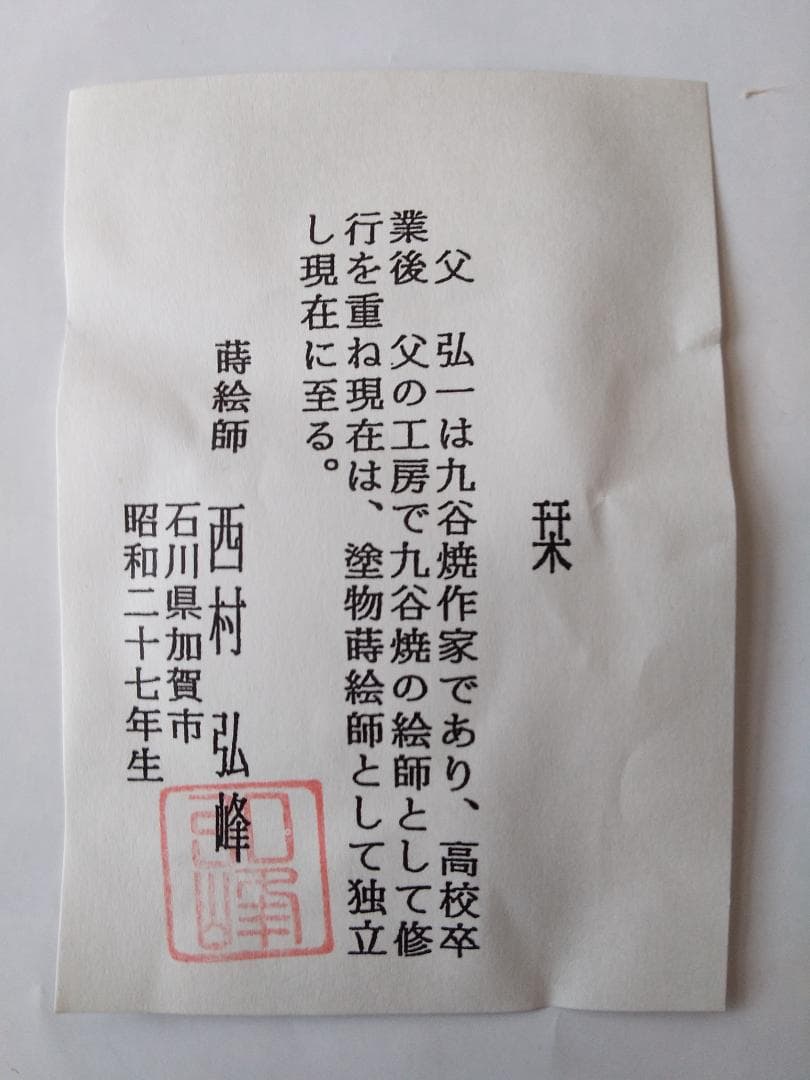 栞
父　弘一は九谷焼作家であり、高校卒
業後　父の工房で九谷焼の絵師として修
行を重ね現在は、塗物蒔絵師として独立
し現在に至る。
蒔絵師　西村　弘峰
石川県加賀市
昭和二十七年生
弘峰